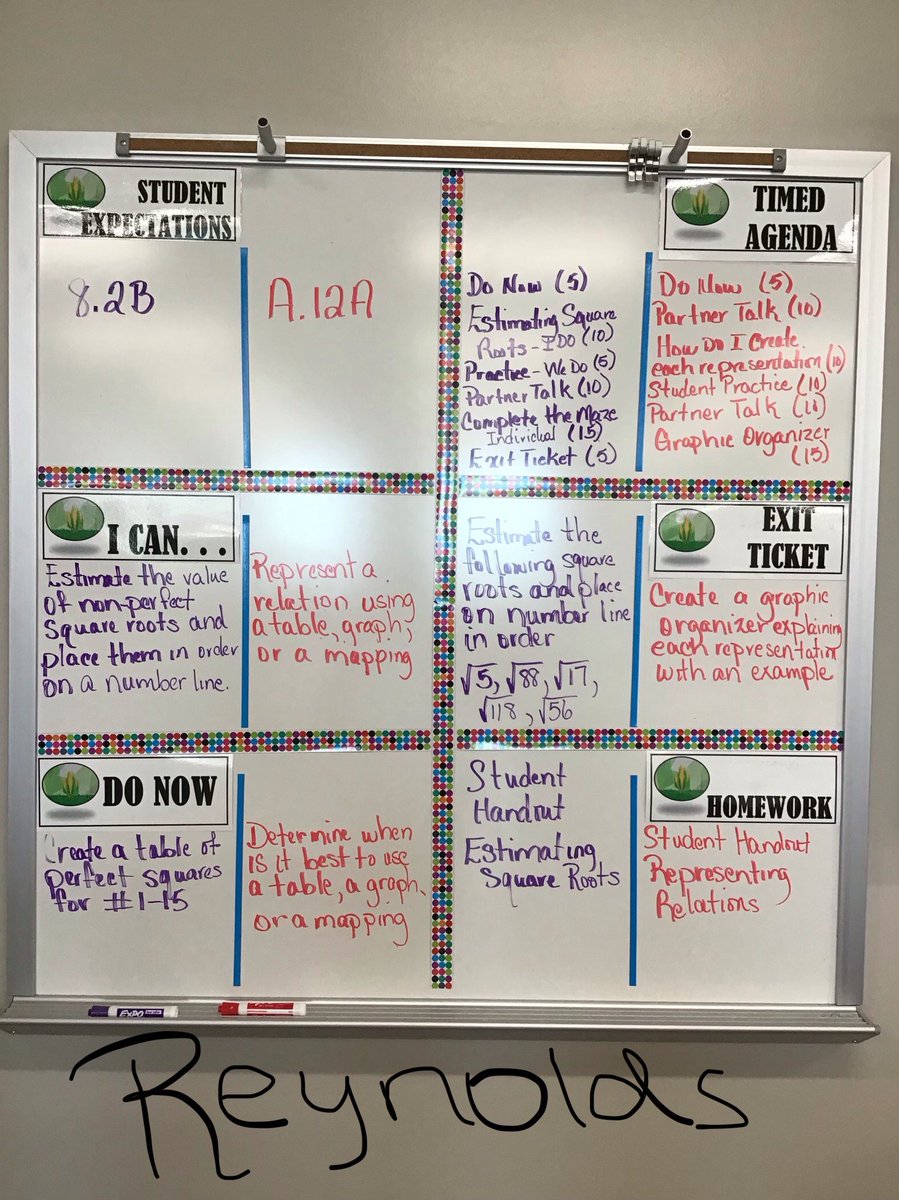 STUDENT
EXPECTATIONS
8.2B
A.12A
TIMED
AGENDA
Do Now (5)
Estimating Square
Roots - I DO (10)
Practice - We Do (5)
Partner Talk (10)
Complete the Maze
Individual (15)
Exit Ticket (5)
Do Now (5)
Partner Talk (10)
How Do I Create
each representation (10)
Student Practice (10)
Partner Talk (10)
Graphic Organizer
(15)
I CAN...
Estimate the value
of non-perfect
square roots and
place them in order
on a number line.
Represent a
relation using
a table, graph,
or a mapping
Estimate the
following square
roots and place
on number line
in order
√5, √88, √17,
√118, √56
EXIT
TICKET
Create a graphic
organizer explaining
each representation
with an example
DO NOW
Create a table of
perfect squares
for #1-15
Determine when
is it best to use
a table, a graph,
or a mapping
Student
Handout
Estimating
Square Roots
HOMEWORK
Student Handout
Representing
Relations
EXPO
Reynolds